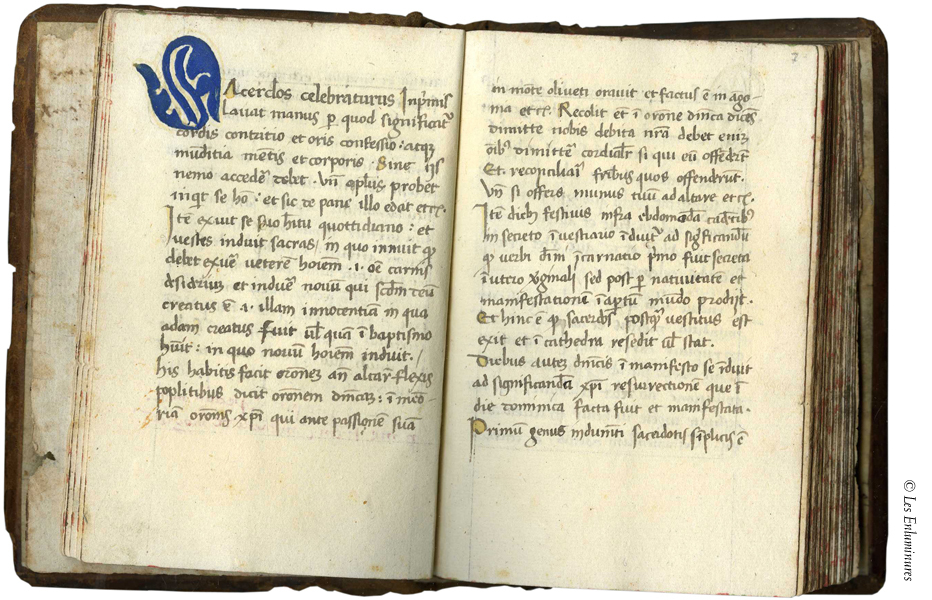 SAcerdos celebraturus Inprimis
Lavat manus p quod significatr
cordis contritio et oris confessio : atqz
mūditia mētis et corporis . Sine iis
nemo accedē debet . Vn̄ aplus probet
inqit se hō : et sic de pane illo edat etc.
Itē exuit se suo hītu quottidiano : et
vestes induit sacras / in quo innuit qp
debet exuē veterē hoiem .i. oē carnis
desideriuz et induē novū qui scdm deū
creatus ē .i. illam innocentiā in qua
adam creatus fuit ul quā ī baptismo
hūit : in quo novū hoiem induit . /
his habitis facit oronez an̄ altar flexis
poplitibus dicit oronem dnīcaz : ī meō-
riā oronis xpī qui ante passionē suā
7
in mōte oliveti oravit et factus ē in ago-
nia etc. Recolit ēt ī orone dnīca dicēs
dimitte nobis debita nrā debet eniz
ōibus dimittē cordialr si qui eū offēderūt
Et reconciliari fribus quos offenderut .
Vn̄ si offers munus tuū ad altare etc.
Itē dieb festivis infra ebdomada
in secreto ī vestiario īduitr ad sigficandū
qp verbi dīni īcarnatio pimo fuit secreta
ī utero virginali sed post p nativitatē et
manifestationē ī aptū mūdo prodijt .
Et hinc ē qp sacerdos postqz vestitus est
exit et ī cathedra resedit ul stat .
Diebus autez dnīcis ī manifesto se īduit
ad significandā xpī resurrectionē que ī
die dominica facta fuit et manifestata .
Primū genus indumēti sacerdotis simplicis ē
© Les Enluminures